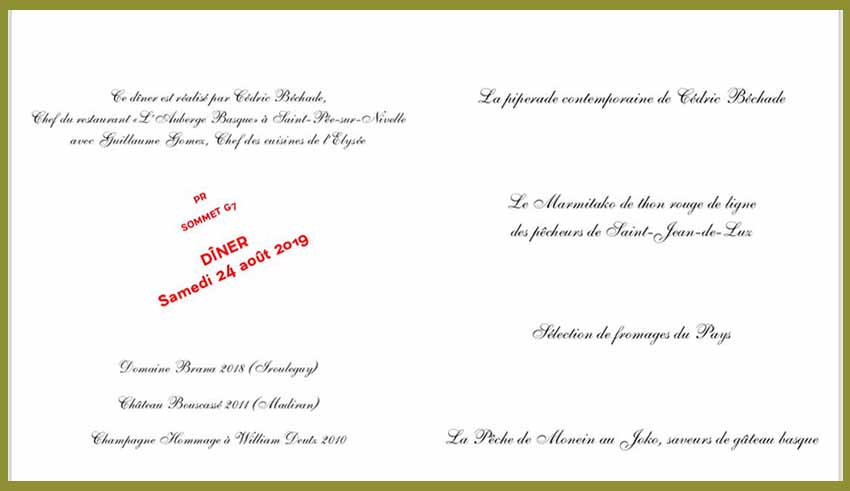 Ce dîner est réalisé par Cédric Béchade,
Chef du restaurant «L'Auberge Basque» à Saint-Pée-sur-Nivelle
avec Guillaume Gomez, Chef des cuisines de l'Elysée
PR
SOMMET G7
DÎNER
Samedi 24 août 2019
Domaine Brana 2018 (Irouleguy)
Château Bouscassé 2011 (Madiran)
Champagne Hommage à William Deutz 2010
La piperade contemporaine de Cédric Béchade
Le Marmitako de thon rouge de ligne
des pêcheurs de Saint-Jean-de-Luz
Sélection de fromages du Pays
La Pêche de Monein au Joko, saveurs de gâteau basque